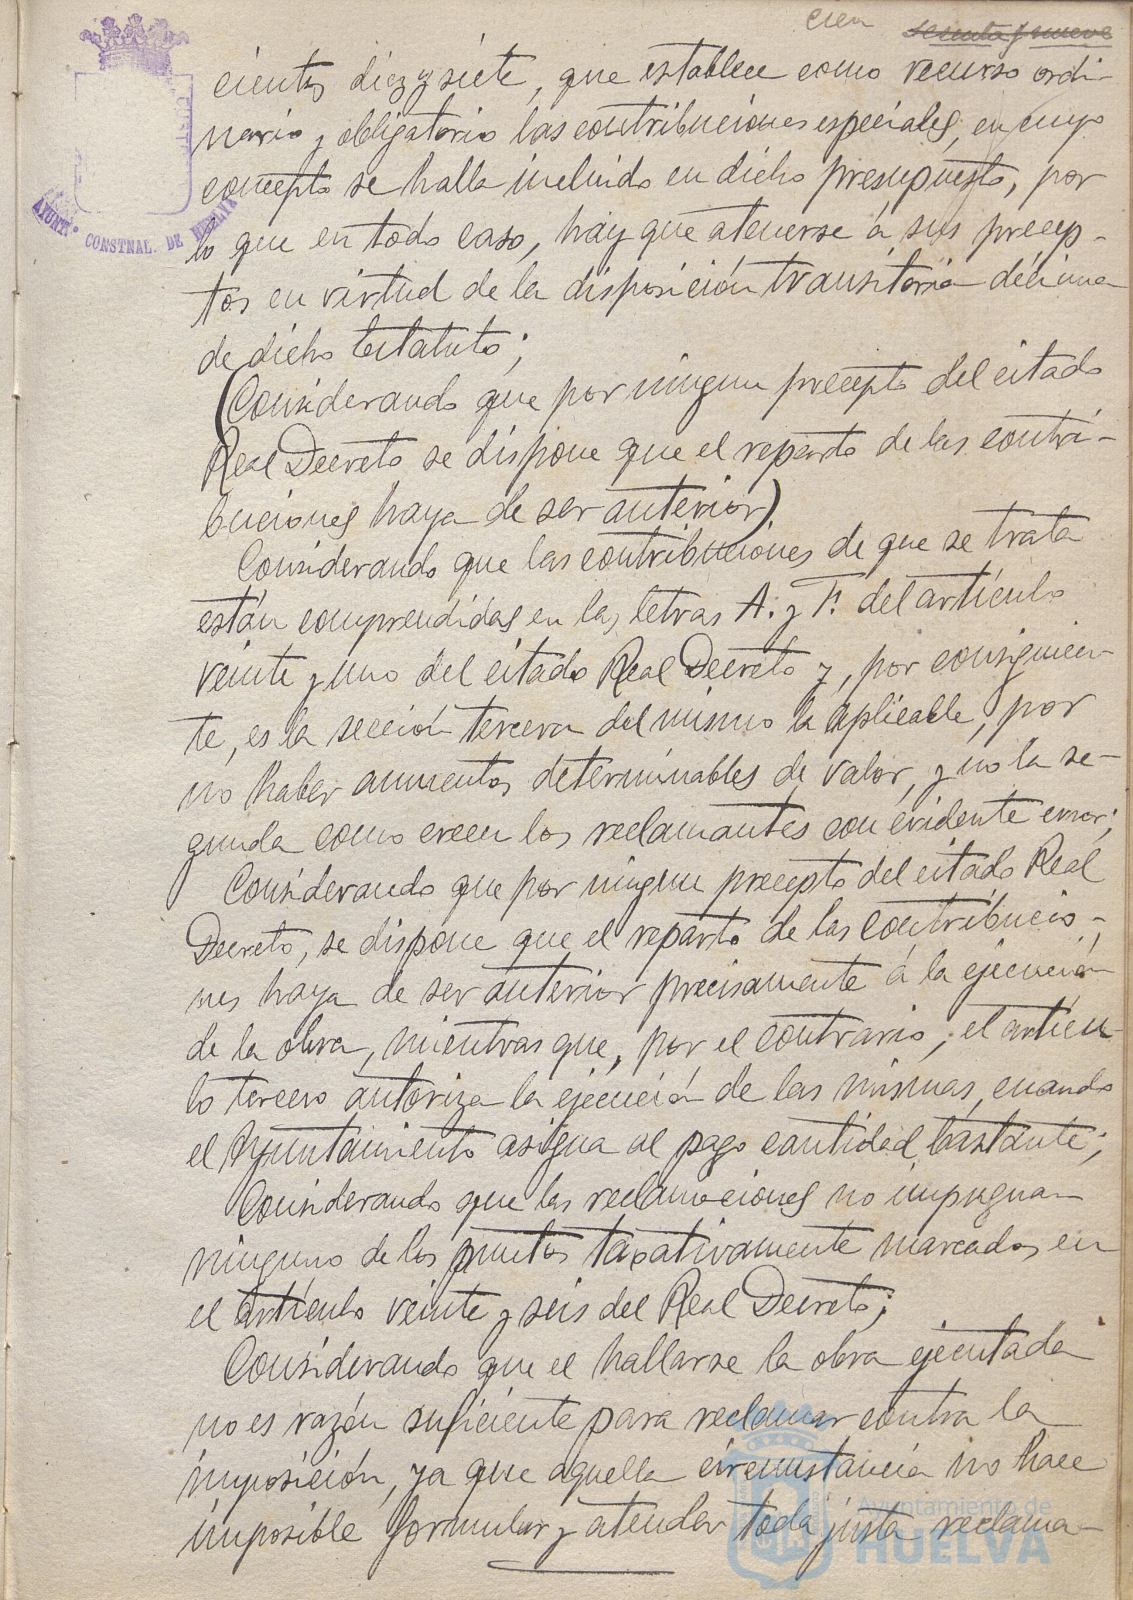 cien sesenta y nueve
cientos diez y siete, que establece como recurso ordi-
nario y obligatorio las contribuciones especiales, en cuyo
concepto se halla incluido en dicho presupuesto, por
lo que en todo caso, hay que atenerse á sus precep-
tos en virtud de la disposición transitoria décima
de dicho Estatuto;
(Considerando que por ningun precepto del citado
Real Decreto se dispone que el reparto de las contri-
buciones haya de ser anterior)
Considerando que las contribuciones de que se trata
están comprendidas en las letras A. y F. del artículo
veinte y uno del citado Real Decreto y, por consiguien-
te, es la sección tercera del mismo la aplicable, por
no haber aumentos determinables de valor, y no la se-
gunda como creen los reclamantes con evidente error;
Considerando que por ningun precepto del citado Real
Decreto, se dispone que el reparto de las contribucio-
nes haya de ser anterior precisamente á la ejecución
de la obra, mientras que, por el contrario, el artícu
lo tercero autoriza la ejecución de las mismas, cuando
el Ayuntamiento asigna al pago cantidad bastante;
Considerando que las reclamaciones no impugnan
ninguno de los puntos taxativamente marcados en
el artículo veinte y seis del Real Decreto;
Considerando que el hallarse la obra ejecutada
no es razón suficiente para reclamar contra la
imposición, ya que aquella circunstancia no hace
imposible formular y atender toda justa reclama-
AYUNTº CONSTNAL. DE HUELVA
Ayuntamiento de
HUELVA